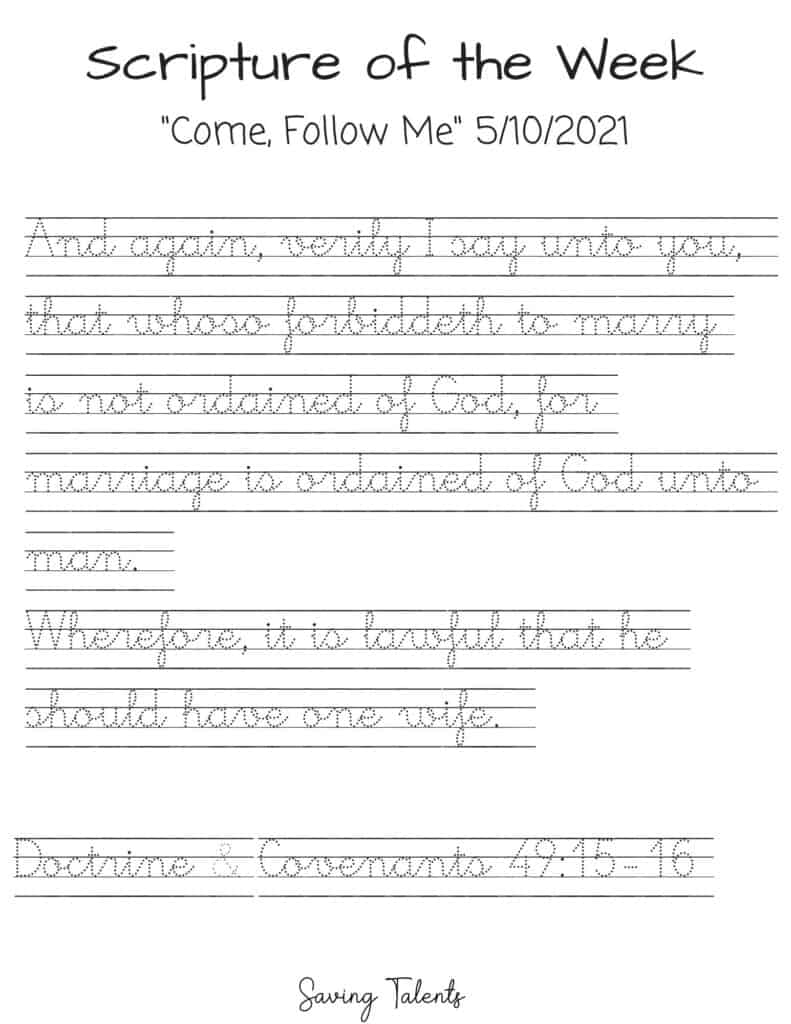 Scripture of the Week
"Come, Follow Me" 5/10/2021
And again, verily I say unto you,
that whoso forbiddeth to marry
is not ordained of God, for
marriage is ordained of God unto
man.
Wherefore, it is lawful that he
should have one wife.
Doctrine & Covenants 49:15-16
Saving Talents